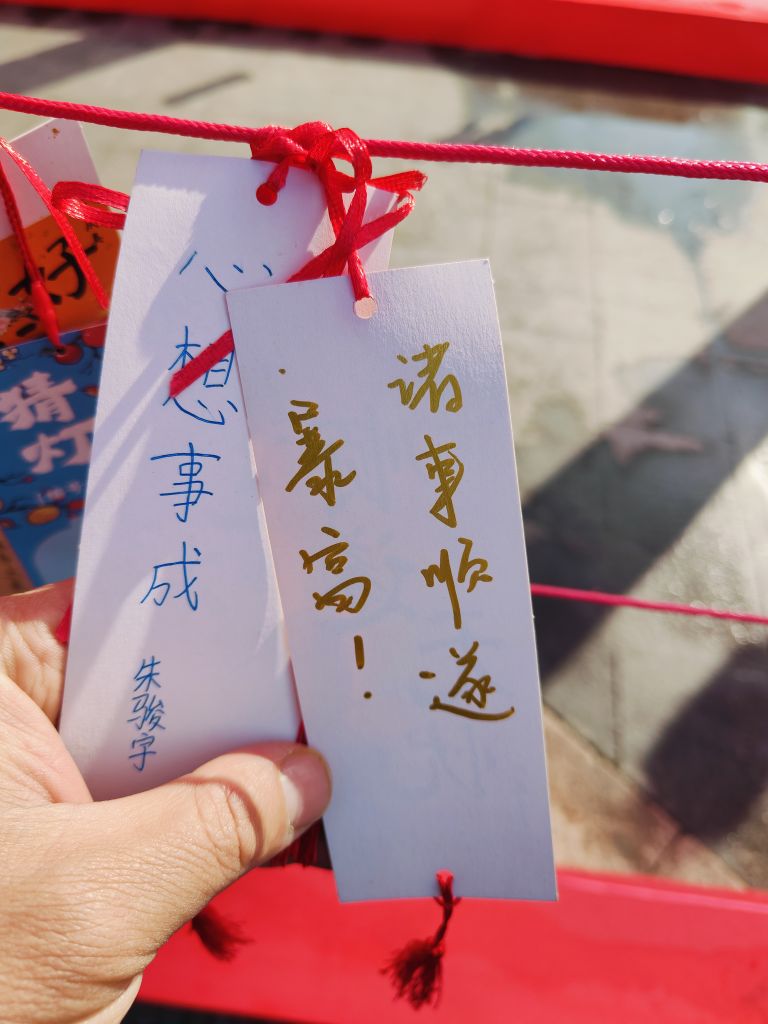 心想事成
朱骏宇
诸事顺遂
暴富！
好
猜灯